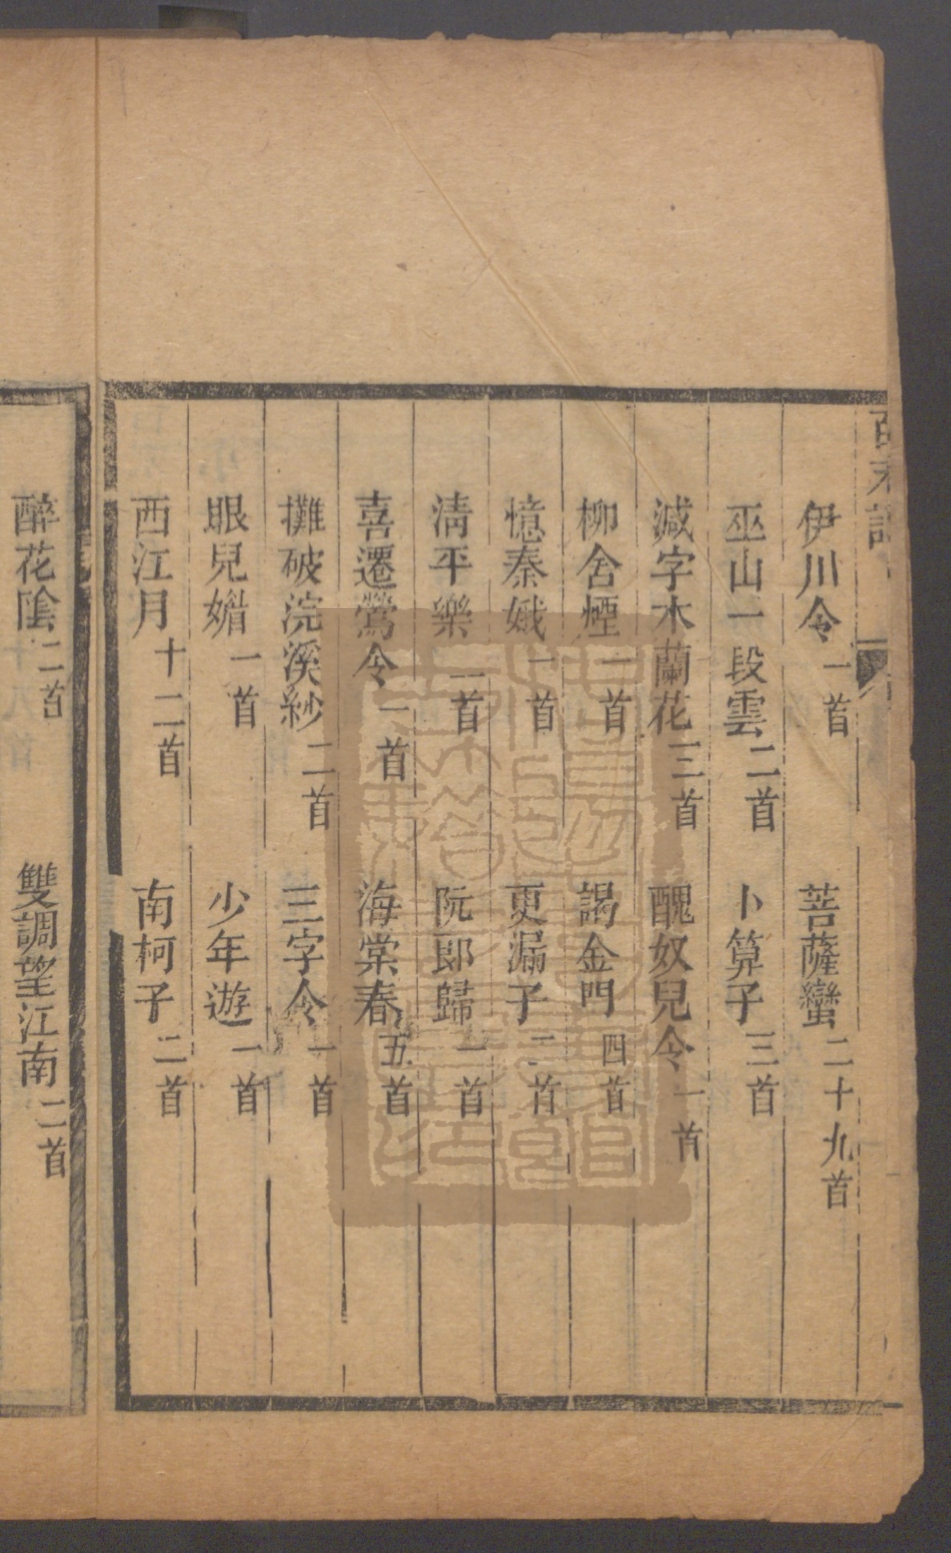 伊川令一首　菩薩蠻二十九首
巫山一段雲二首　卜算子三首
減字木蘭花三首　醜奴兒令一首
柳含煙一首　謁金門四首
憶秦娥一首　更漏子二首
清平樂二首　阮郎歸一首
喜遷鶯令一首　海棠春五首
攤破浣溪紗二首　三字令一首
眼兒媚一首　少年遊一首
西江月十二首　南柯子二首
醉花陰二首　雙調望江南二首